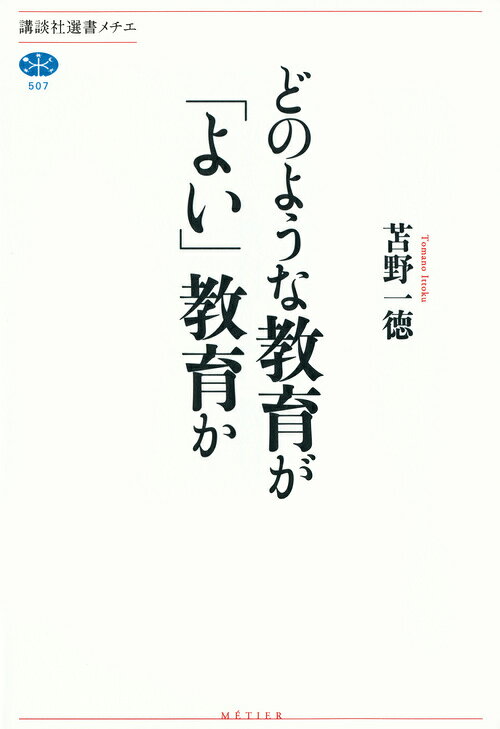 講談社選書メチエ
507
どのような教育が
「よい」教育か
苫野一徳
Tomano Ittoku
MÉTIER